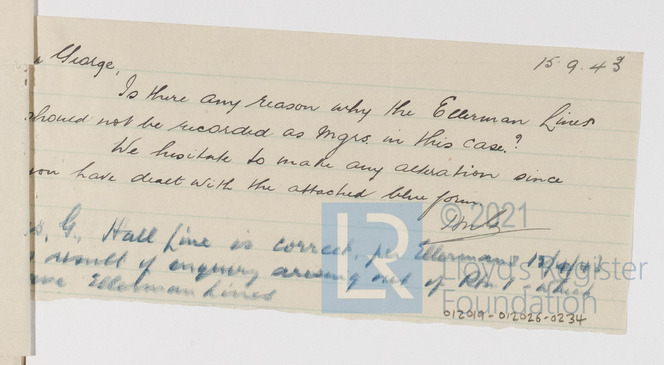 15.9.43
George,
Is there any reason why the Ellerman Lines
should not be recorded as Mgrs. in this case?
We hesitate to make any alteration since
you have dealt with the attached blue form
G. Hall Line is correct, per Ellermans 15/9/43
result of enquiry arising out of which
Ellerman Lines
LR
© 2021
Lloyd's Register
Foundation
012019-012026-0234